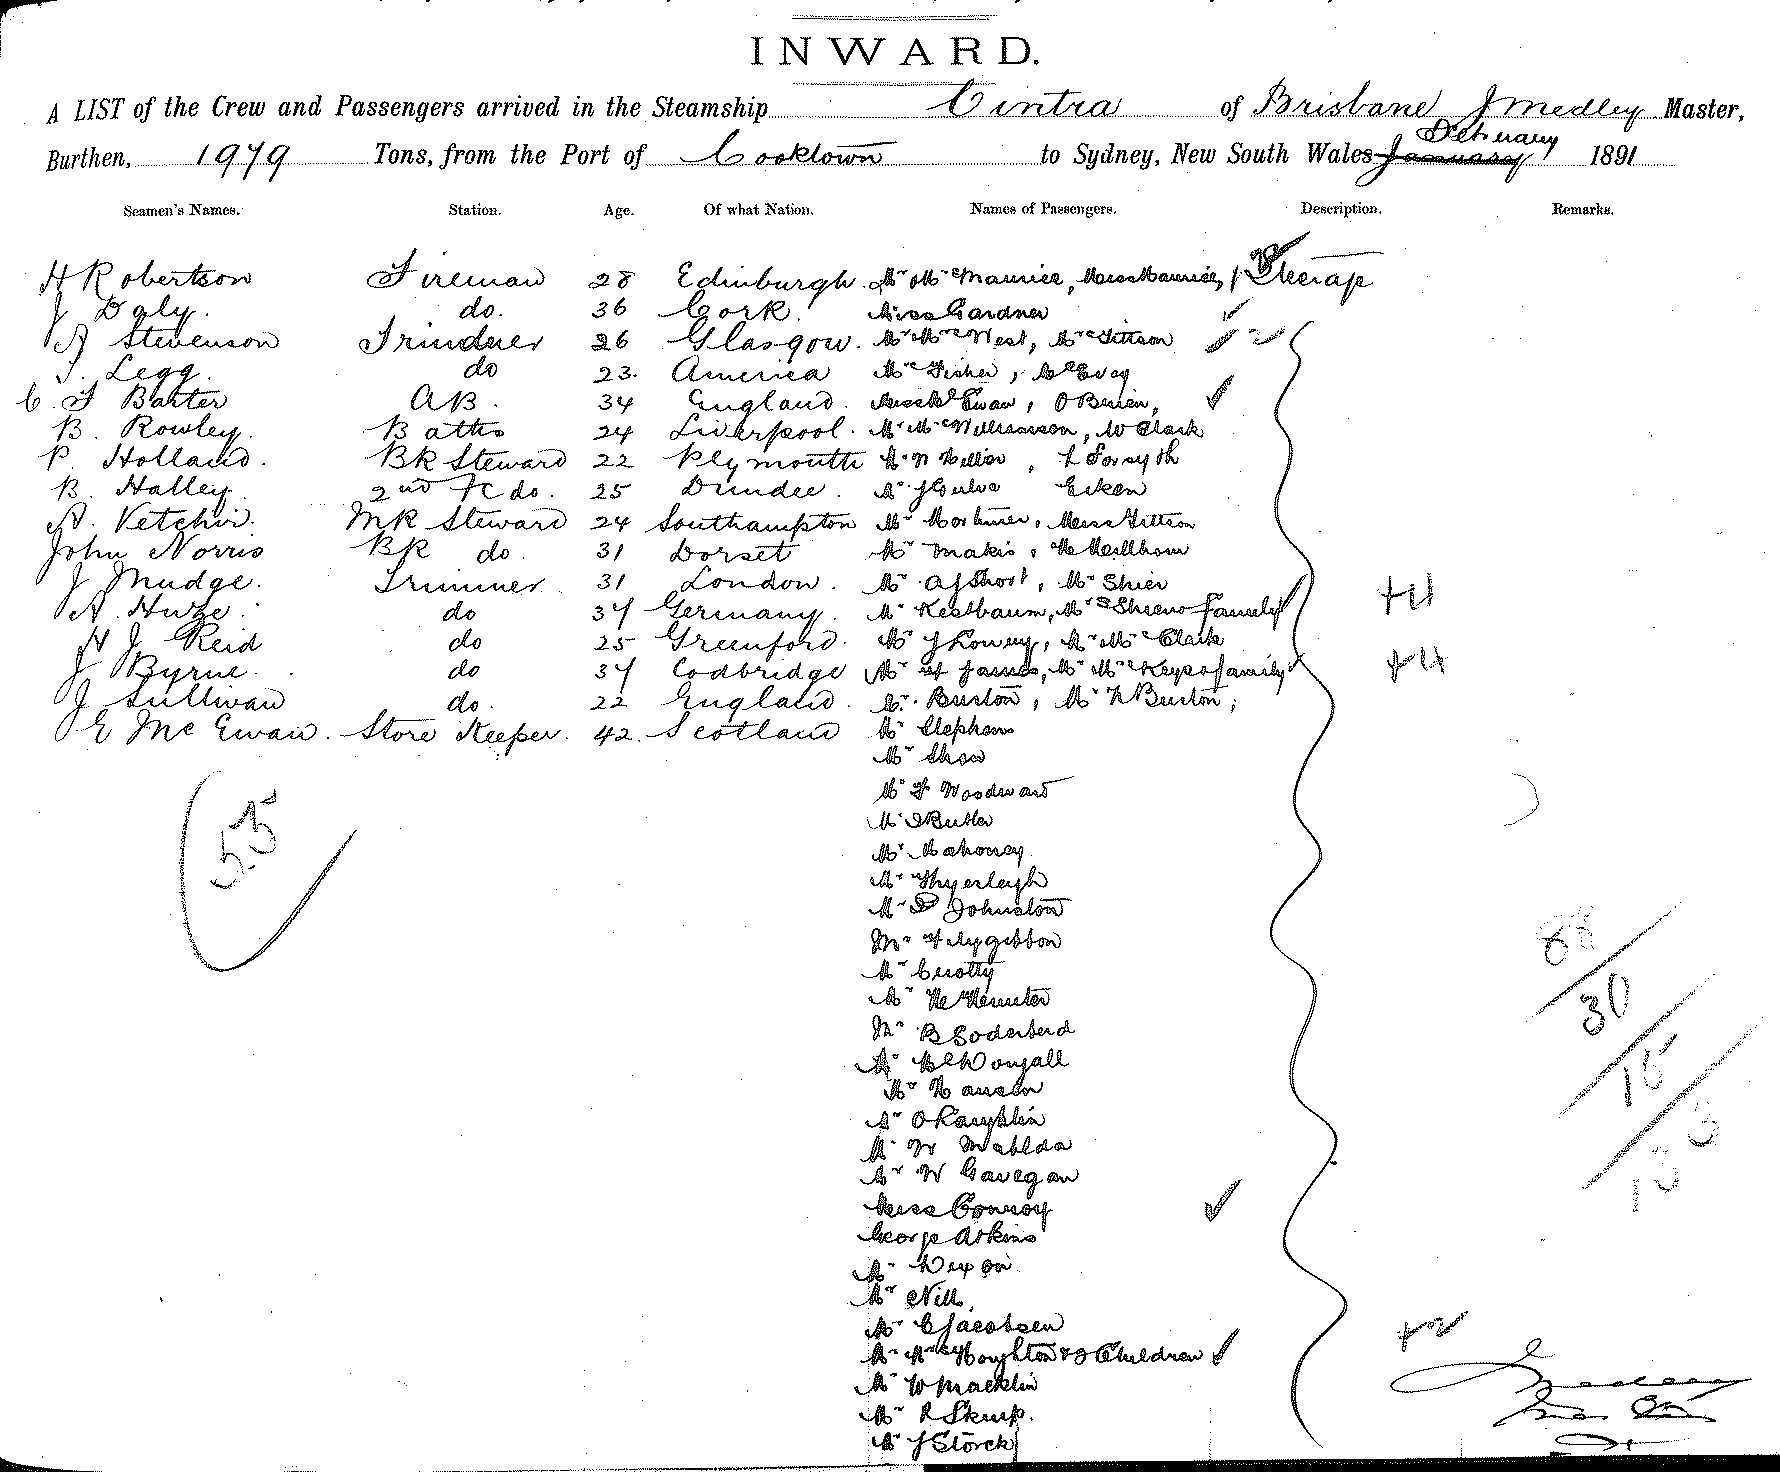 INWARD.
A LIST of the Crew and Passengers arrived in the Steamship Cintra of Brisbane J Medley Master,
Burthen, 1979 Tons, from the Port of Cooktown to Sydney, New South Wales January February 1891
Seamen's Names. Station. Age. Of what Nation. Names of Passengers. Description. Remarks.
H Robertson Fireman 28 Edinburgh Mr Mrs Maurice, Miss Maurice,
J Daly. do. 36 Cork. Miss Gardner
A Stevenson Trimmer 26 Glasgow. Mr Mrs West, Mr Tittson
Legg. do 23. America Mr Fisher,
C. F Baxter AB. 34 England. Miss McEwan, OBrien,
B. Rowley. 24 Liverpool. Mr Mrs Williamson, W Clark
P. Holland. BR Steward 22 Plymouth Forsyth
B. Halley. 2nd FC do. 25 Dundee.
A. Ketchin. MR Steward 24 Southampton Mr Mortimer, Miss Tittson
John Norris BR do. 31 Dorset Mr Makis,
J Mudge. Trimmer 31 London. Mr A J Short, Mr Shier
A. Huze. do 34 Germany. Mr Kestbaum, family
H J Reid do 25 Greenford. Mr J Loney, Mr Mrs Clark
J Byrne. do 34 Codbridge Mr James, Mr Mrs Keyes & family
J Sullivan do. 22 England. Burston, Mr Burston,
E Mc Ewan. Store Keeper. 42. Scotland Mr Stephens
Mr Shaw
Mr F Woodward
Mr Butler
Mr Mahoney
55
Mr Thyerleigh
Mr Johnston
Mr Fitzgibbon
88
Mr Crotty
30
Mr B Soderberd
Mr McDougall
15
Mr Hansen
Mr OLaughlin
Mr W
Mr W Gavegan
Miss Conroy
George Atkins
Mr Dixon
Mr Nill,
Mr C Jacobsen
+2
Mr Mrs Houghton & 3 Children
Mr W Macklin
Medley
Mr R Skeup.
Mr J Storck